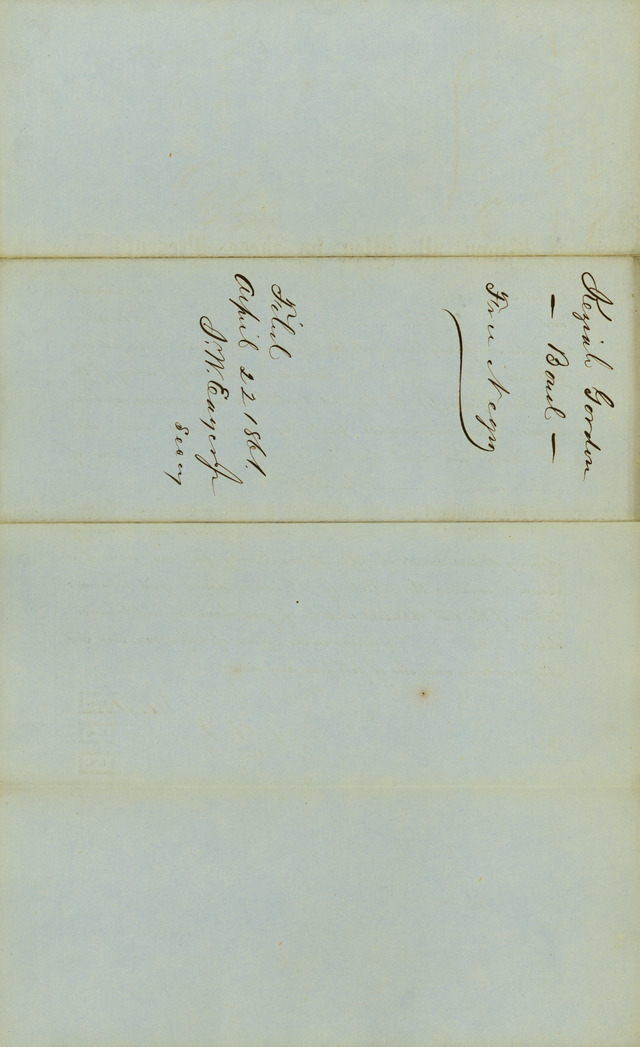 Keziah Gordon
— Bond —
Free Negro
Filed
April 22 1861.
S. W. Eager Jr
Secy